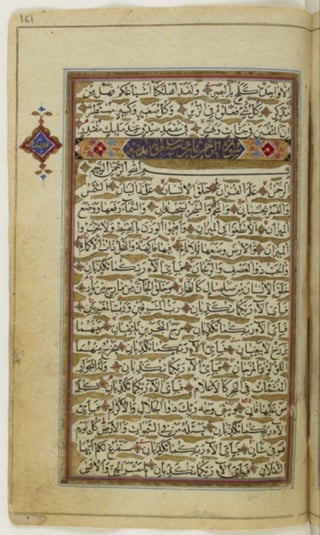 الا واحدة كلمح بالبصر ولقد اهلكنا اشياعكم فهل من
مدكر وكل شيء فعلوه في الزبر وكل صغير وكبير مستطر ان
المتقين في جنات ونهر في مقعد صدق عند مليك مقتدر
سورة الرحمن
بسم الله الرحمن الرحيم
الرحمن علم القرآن خلق الانسان علمه البيان الشمس
والقمر بحسبان والنجم والشجر يسجدان والسماء رفعها ووضع
الميزان الا تطغوا في الميزان واقيموا الوزن بالقسط ولا تخسروا
الميزان والارض وضعها للانام فيها فاكهة والنخل ذات الاكمام
والحب ذو العصف والريحان فباي آلاء ربكما تكذبان
خلق الانسان من صلصال كالفخار وخلق الجان من مارج من نار
فباي آلاء ربكما تكذبان رب المشرقين ورب المغربين
فباي آلاء ربكما تكذبان مرج البحرين يلتقيان بينهما
برزخ لا يبغيان فباي آلاء ربكما تكذبان يخرج منهما
اللؤلؤ والمرجان فباي آلاء ربكما تكذبان وله الجوار
المنشآت في البحر كالاعلام فباي آلاء ربكما تكذبان كل
من عليها فان ويبقى وجه ربك ذو الجلال والاكرام فباي
آلاء ربكما تكذبان يسئله من في السموات والارض كل يوم
هو في شأن فباي آلاء ربكما تكذبان سنفرغ لكم ايها
الثقلان فباي آلاء ربكما تكذبان يا معشر الجن والانس